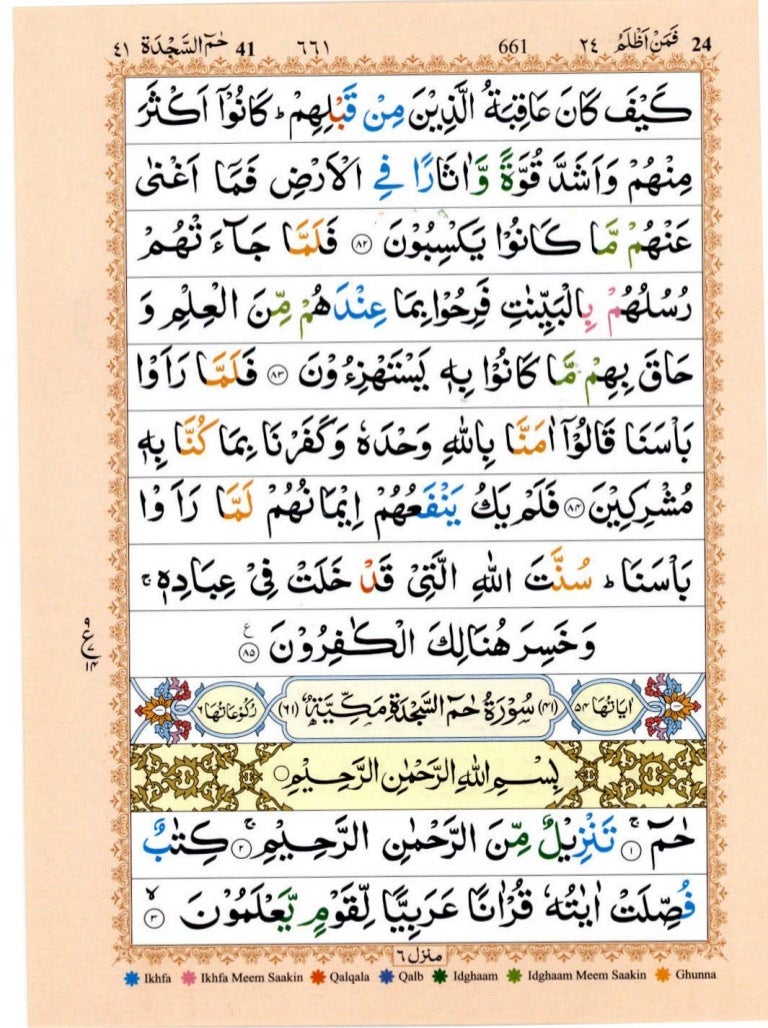 24 فَمَنْ اَظْلَمُ ٢٤ 661 ٦٦١ 41 حٰمٓ السَّجْدَة ٤١
كَيْفَ كَانَ عَاقِبَةُ الَّذِيْنَ مِنْ قَبْلِهِمْ ؕ كَانُوْۤا اَكْثَرَ
مِنْهُمْ وَاَشَدَّ قُوَّةً وَّاٰثَارًا فِي الْاَرْضِ فَمَاۤ اَغْنٰى
عَنْهُمْ مَّا كَانُوْا يَكْسِبُوْنَ ۝۸۲ فَلَمَّا جَآءَتْهُمْ
رُسُلُهُمْ بِالْبَيِّنٰتِ فَرِحُوْا بِمَا عِنْدَهُمْ مِّنَ الْعِلْمِ وَ
حَاقَ بِهِمْ مَّا كَانُوْا بِهٖ يَسْتَهْزِءُوْنَ ۝۸۳ فَلَمَّا رَاَوْا
بَاْسَنَا قَالُوْۤا اٰمَنَّا بِاللّٰهِ وَحْدَهٗ وَكَفَرْنَا بِمَا كُنَّا بِهٖ
مُشْرِكِيْنَ ۝۸۴ فَلَمْ يَكُ يَنْفَعُهُمْ اِيْمَانُهُمْ لَمَّا رَاَوْا
بَاْسَنَا ؕ سُنَّتَ اللّٰهِ الَّتِيْ قَدْ خَلَتْ فِيْ عِبَادِهٖ ۚ
وَخَسِرَ هُنَالِكَ الْكٰفِرُوْنَ ۝۸۵ ع
۹ ع ۷ ۱۴
اٰيَاتُهَا ٥٤ (٤١) سُوْرَةُ حٰمٓ السَّجْدَةِ مَكِّيَّةٌ (٦١) رُكُوْعَاتُهَا ٦
بِسْمِ اللّٰهِ الرَّحْمٰنِ الرَّحِيْمِ
حٰمٓ ۚ ۝۱ تَنْزِيْلٌ مِّنَ الرَّحْمٰنِ الرَّحِيْمِ ۚ ۝۲ كِتٰبٌ
فُصِّلَتْ اٰيٰتُهٗ قُرْاٰنًا عَرَبِيًّا لِّقَوْمٍ يَّعْلَمُوْنَ ۙ ۝۳
منزل ٦
Ikhfa Ikhfa Meem Saakin Qalqala Qalb Idghaam Idghaam Meem Saakin Ghunna